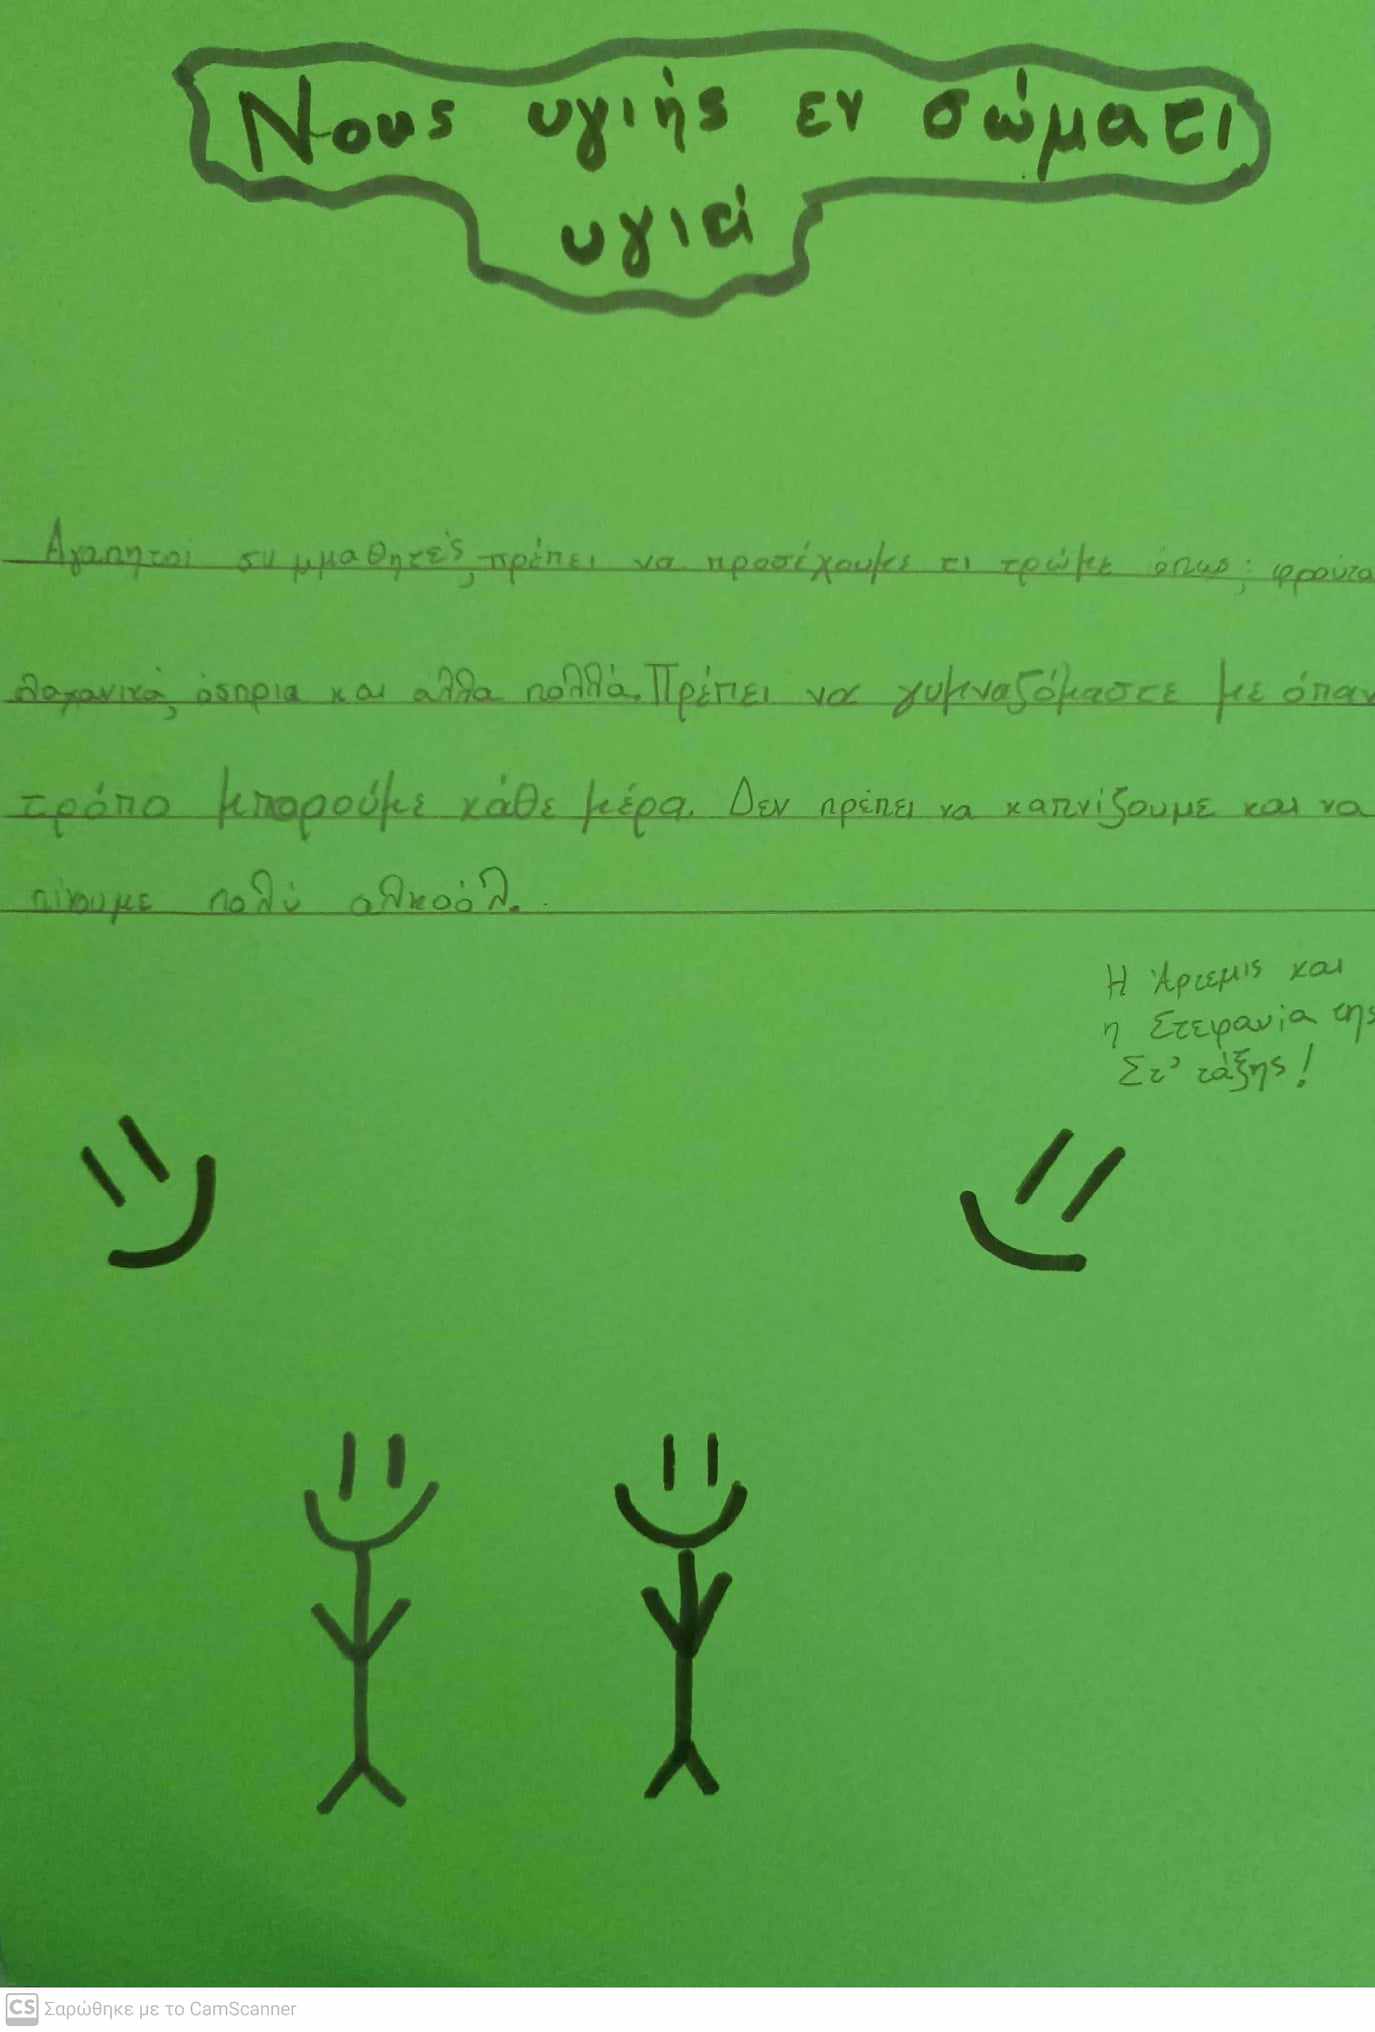 Νους υγιής εν σώματι
υγιεί
Αγαπητοί συμμαθητές, πρέπει να προσέχουμε τι τρώμε όπως: φρούτα
λαχανικά, όσπρια και αλλα πολλά. Πρέπει να γυμναζόμαστε με όποιον
τρόπο μπορούμε κάθε μέρα. Δεν πρέπει να καπνίζουμε και να
πίνουμε πολύ αλκοόλ.
Η Άρτεμις και
η Στεφανία της
Στ' τάξης!
CS Σαρώθηκε με το CamScanner